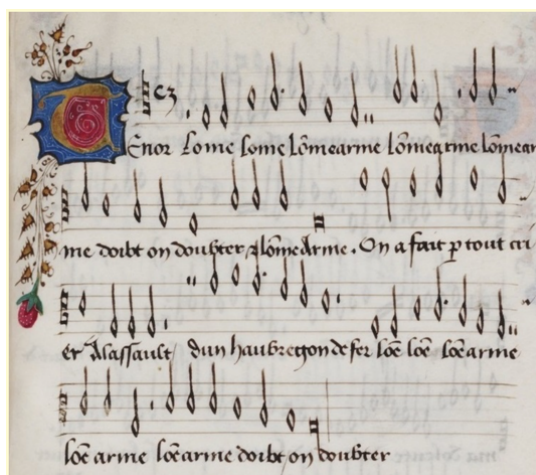 Tenor Lome Lome Lõmearme lõmearme lõmear
me doibt on doubter Alõme Arme. On a fait p tout cri
er Alassault dun haubregon de fer lõe lõe lõearme
lõe arme lõe arme doibt on doubter